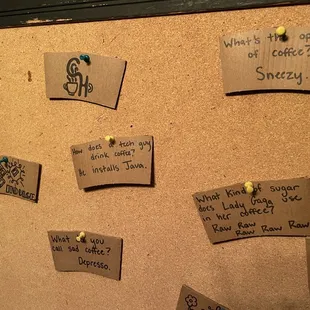 What's the op
of coffee?
Sneezy.
How does a tech guy
drink coffee?
He installs Java.
What kind of sugar
does Lady Gaga use
in her coffee?
Raw Raw
Raw Raw Raw
What do you
call sad coffee?
Depresso.